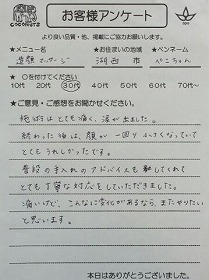 COCONUTS
お客様アンケート
より良い品質・他、掲載にご協力お願いします。
★メニュー名 ★お住まいの地域 ★ペンネーム
造顔マッサージ 湖西市 ぺこちゃん
★ ○を付けてください
10代 20代 30代 40代 50代 60代 70代〜
★ご意見・ご感想をお聞かせください。
施術はとても痛く、涙が出ました。
終わった後は、顔が一回り小さくなっていて
とてもうれしかったです。
普段の手入れのアドバイスもしてくれて
とても丁寧な対応をしていただきました。
痛いけど、こんなに変化があるなら、またやりたい
と思います。
本日はありがとうございました。